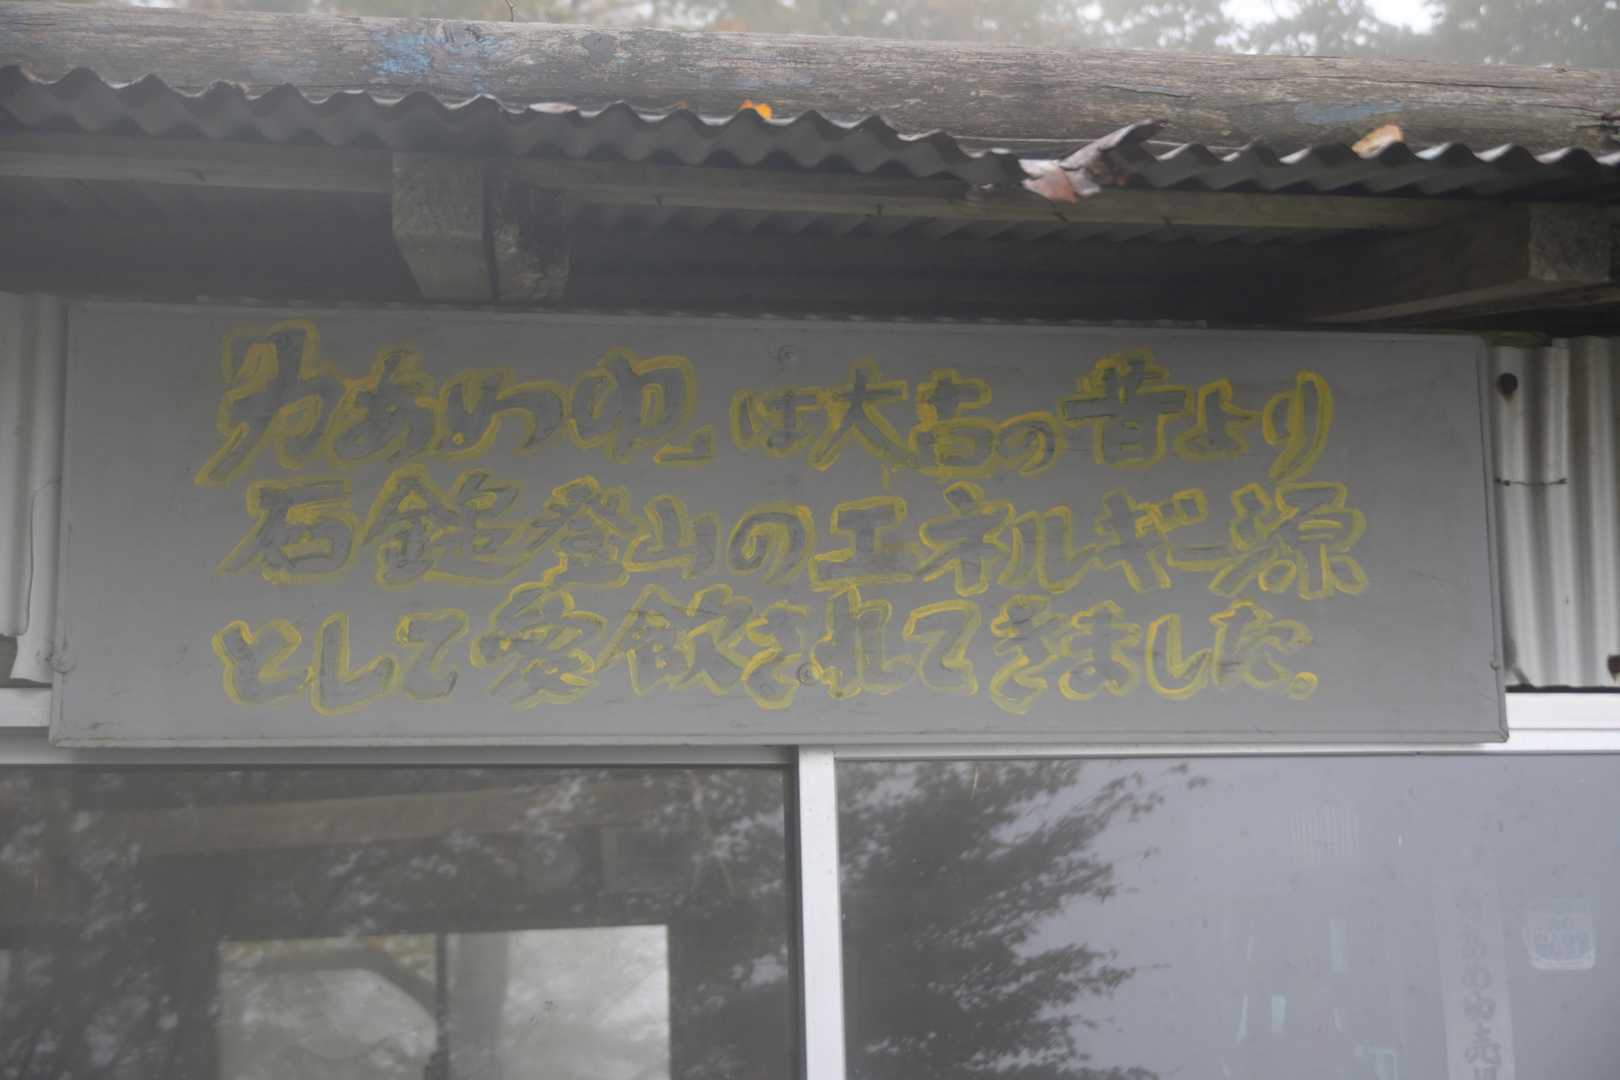 「力あめ湯」は大古の昔より
石鎚登山のエネルギー源
として愛飲されてきました。